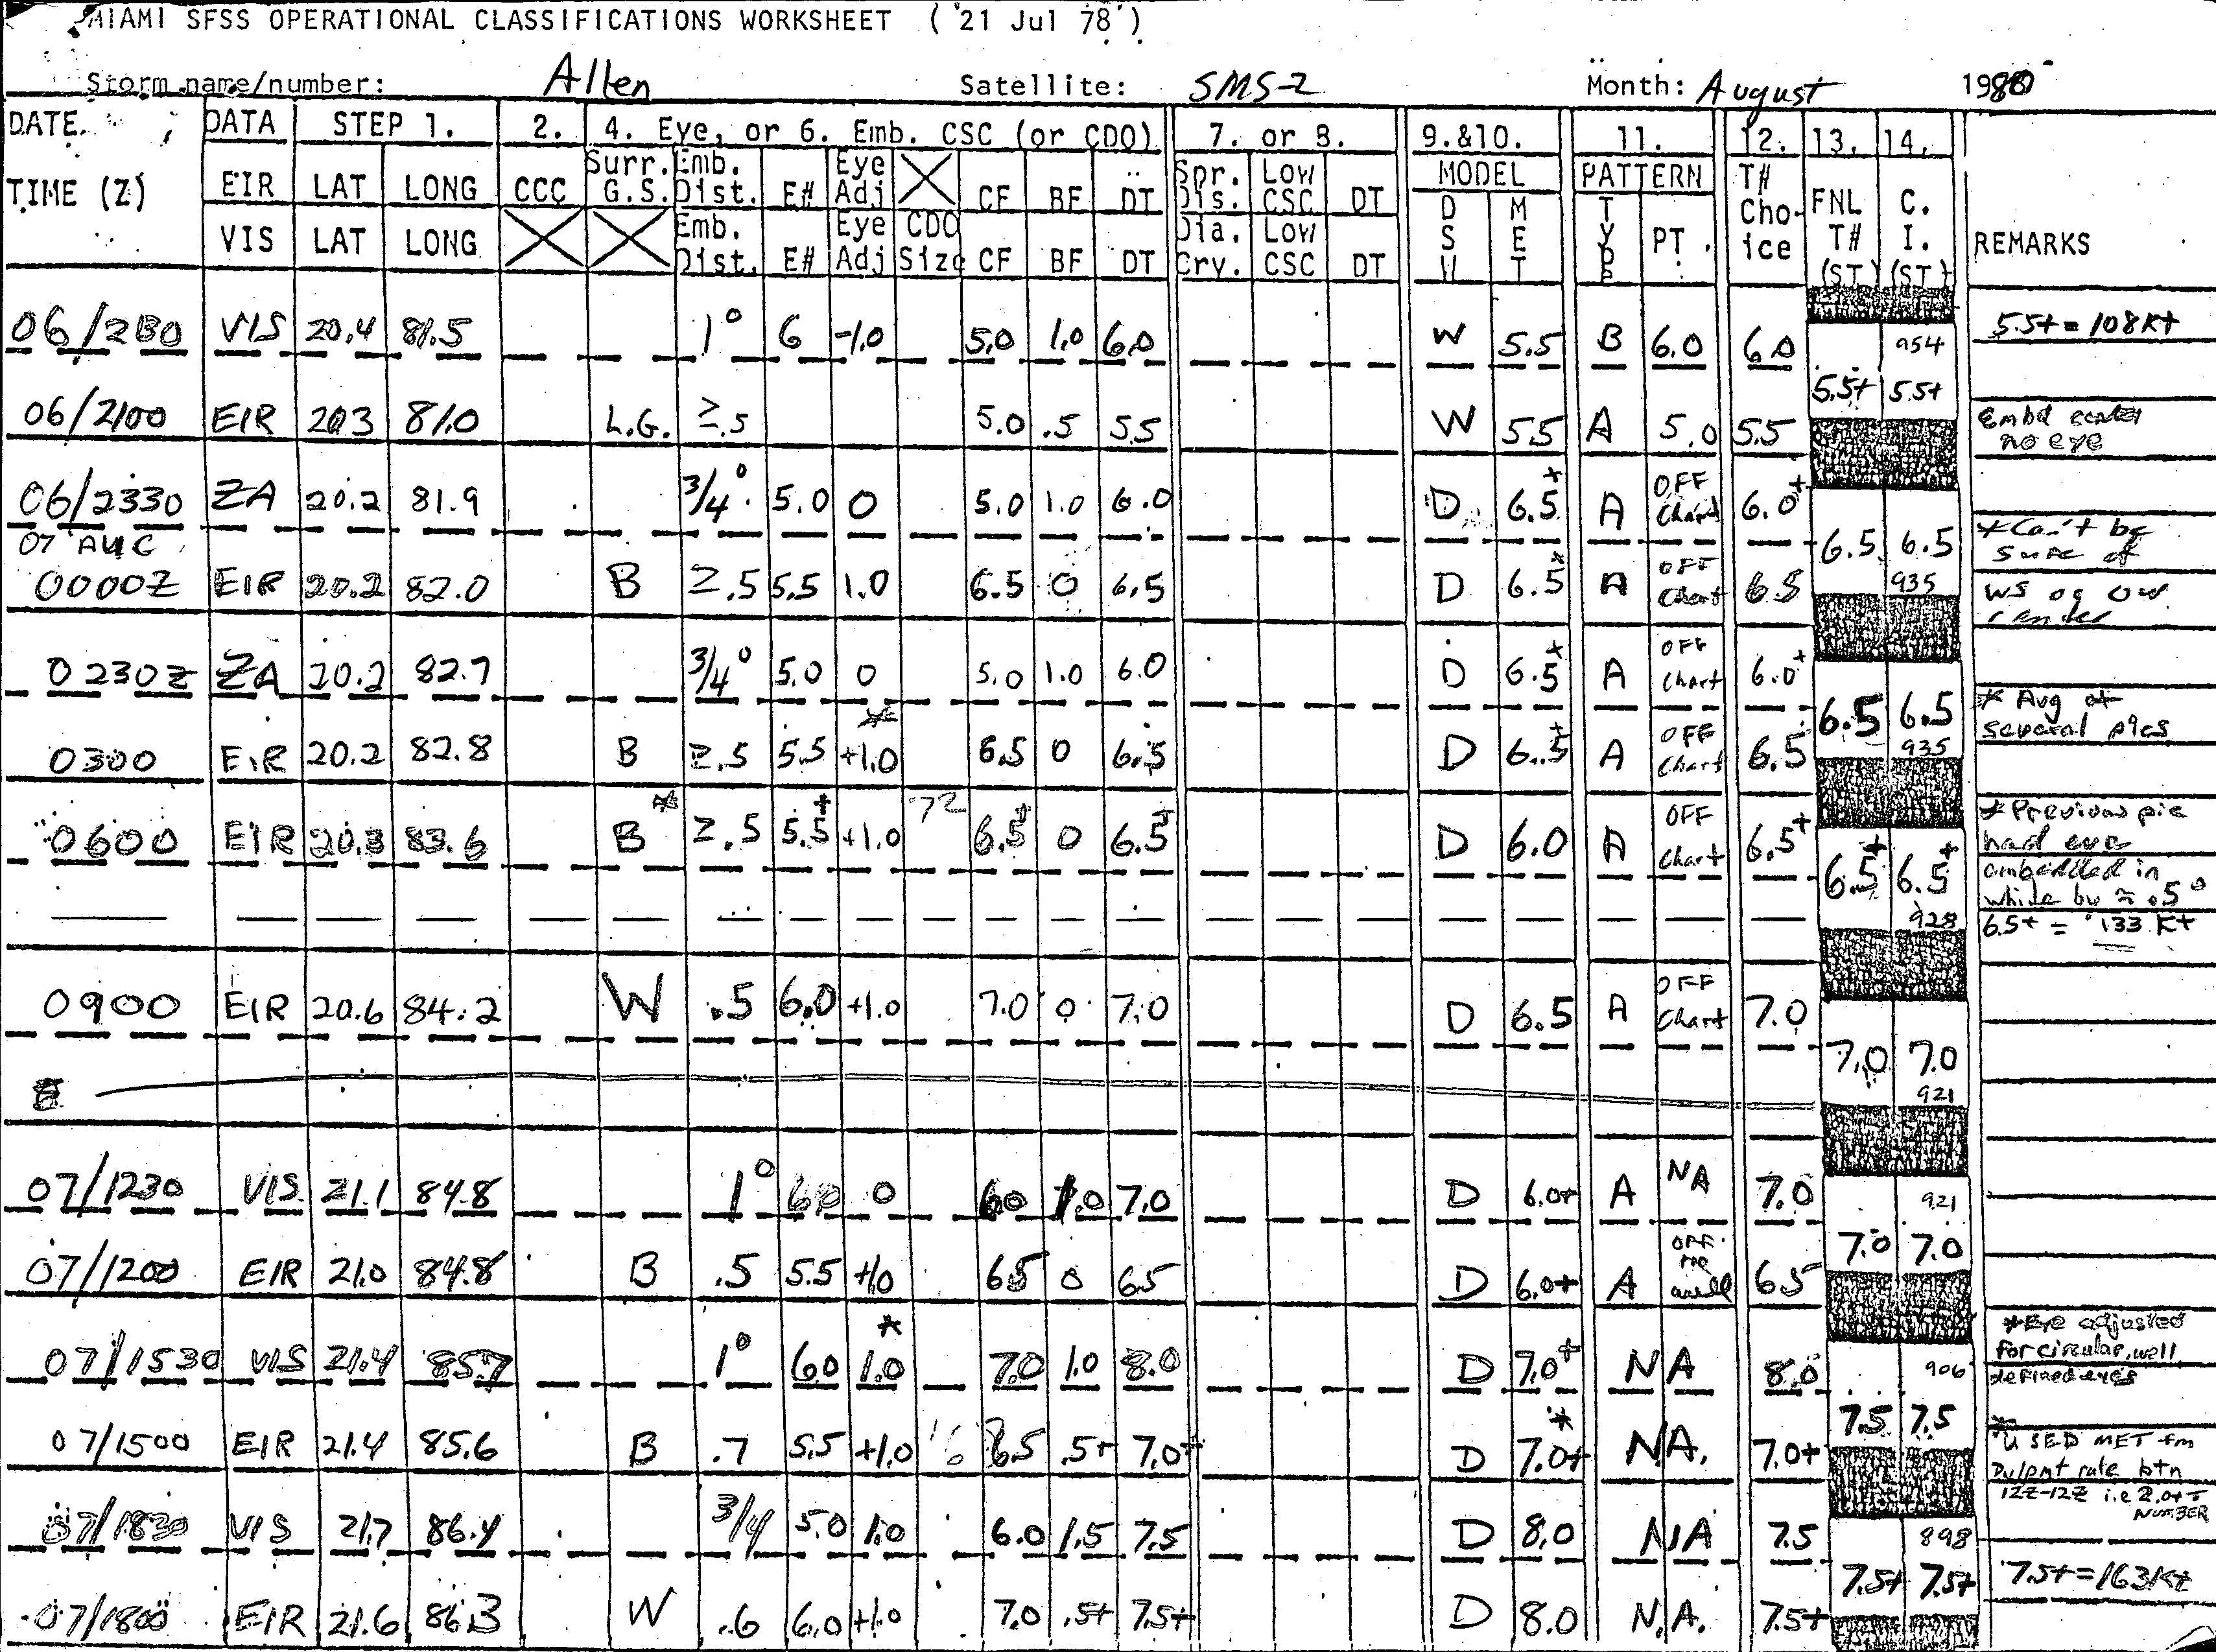 MIAMI SFSS OPERATIONAL CLASSIFICATIONS WORKSHEET ( 21 Jul 78 )
Storm name/number: Allen Satellite: SMS-2 Month: August 1980
DATE. DATA STEP 1. 2. 4. Eye, or 6. Emb. CSC (or CDO) 7. or 8. 9.&10. 11. 12. 13. 14.
TIME (Z) EIR LAT LONG CCC Surr. G.S. Emb. Dist. E# Eye Adj CF BF DT Spr. Dis. Low CSC DT MODEL PATTERN T# Choice FNL T# (ST) C. I. (ST) REMARKS
VIS LAT LONG Emb. Dist. E# Eye Adj CDO Size CF BF DT Dia. Cry. Low CSC DT D S W M E T T Y P E PT.
VIS 20.4 81.5 1° 6 -1.0 5.0 1.0 6.0 W 5.5 B 6.0 6.0 954 5.5+ = 108 kt
5.5+ 5.5+
06/2100 EIR 20.3 81.0 L.G. ≥.5 5.0 .5 5.5 W 5.5 A 5.0 5.5 Embd center
no eye
06/2330 ZA 20.2 81.9 3/4° 5.0 0 5.0 1.0 6.0 D 6.5+ A OFF Chart 6.0+
07 AUG 6.5 6.5 * Can't be
sure of
0000Z EIR 20.2 82.0 B ≥.5 5.5 1.0 6.5 0 6.5 D 6.5* A OFF Chart 6.5 935 WS or OW
center
0230Z ZA 20.2 82.7 3/4° 5.0 0 5.0 1.0 6.0 D 6.5+ A OFF Chart 6.0+
6.5 6.5 * Avg of
several pics
0300 EIR 20.2 82.8 B ≥.5 5.5 +1.0* 6.5 0 6.5 D 6.5+ A OFF Chart 6.5 935
0600 EIR 20.3 83.6 B* ≥.5 5.5+ +1.0 6.5+ 0 6.5+ D 6.0 A OFF Chart 6.5+ * Previous pic
had eye
6.5+ 6.5+ embedded in
white by ≈ .5°
928 6.5+ = 133 Kt
0900 EIR 20.6 84.2 W .5 6.0 +1.0 7.0 0 7.0 D 6.5 A OFF Chart 7.0
7.0 7.0
921
07/1230 VIS 21.1 84.8 1° 6.0 0 6.0 1.0 7.0 D 6.0+ A NA 7.0 921
7.0 7.0
07/1200 EIR 21.0 84.8 B .5 5.5 +1.0 6.5 0 6.5 D 6.0+ A OFF 6.5
07/1530 VIS 21.4 85.7 1° 6.0 1.0* 7.0 1.0 8.0 D 7.0+ NA 8.0 906 * Eye adjusted
for circular, well
defined eye
7.5 7.5
07/1500 EIR 21.4 85.6 B .7 5.5 +1.0 6.5 .5+ 7.0+ D 7.0+* N.A. 7.0+ * USED MET fm
Dvlpmt rate btn
12Z-12Z i.e 2.0+ T
NUMBER
07/1830 VIS 21.7 86.4 3/4 5.0 1.0 6.0 1.5 7.5 D 8.0 NA 7.5 898
7.5+ 7.5+ 7.5+ = 163 Kt
07/1800 EIR 21.6 86.3 W .6 6.0 +1.0 7.0 .5+ 7.5+ D 8.0 N.A. 7.5+